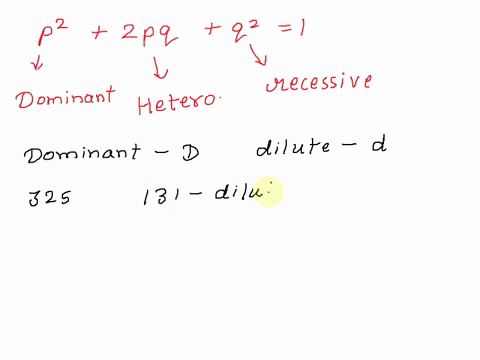 p² + 2pq + q² = 1
Dominant Hetero. recessive
Dominant - D dilute - d
325 131 - dilu